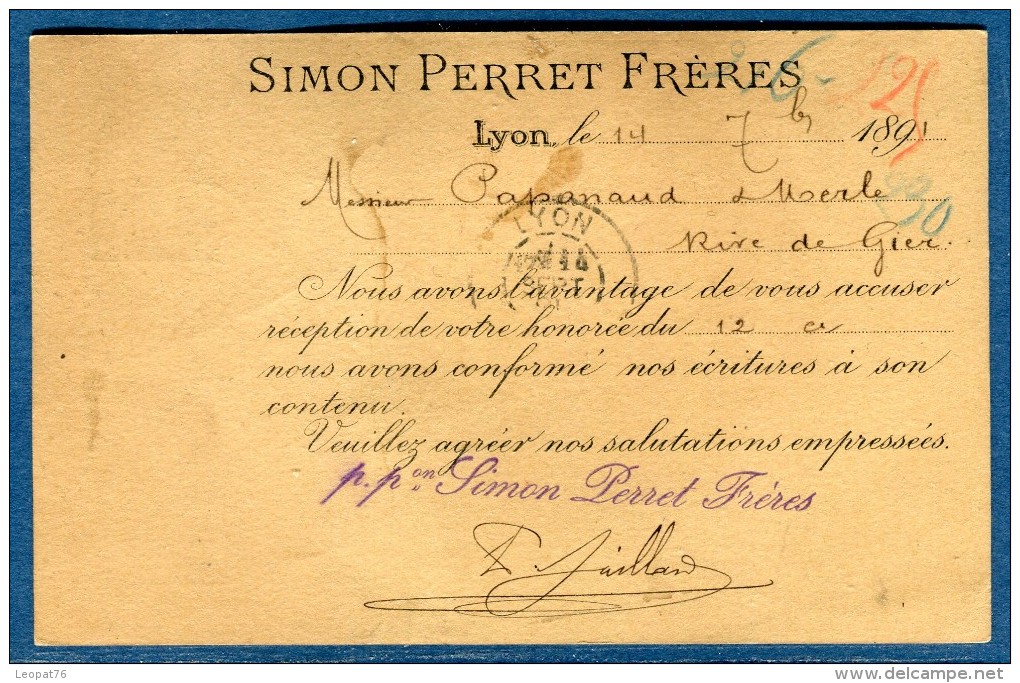 SIMON PERRET FRÈRES
6 - 225
Lyon, le 14 7bre 1891
Messieurs Papanaud & Merle
230
Rive de Gier.
LYON
Nous avons l'avantage de vous accuser
réception de votre honorée du 12 ct
nous avons conformé nos écritures à son
contenu.
Veuillez agréer nos salutations empressées.
p. pon Simon Perret Fréres
Leopat76
delcampe.net